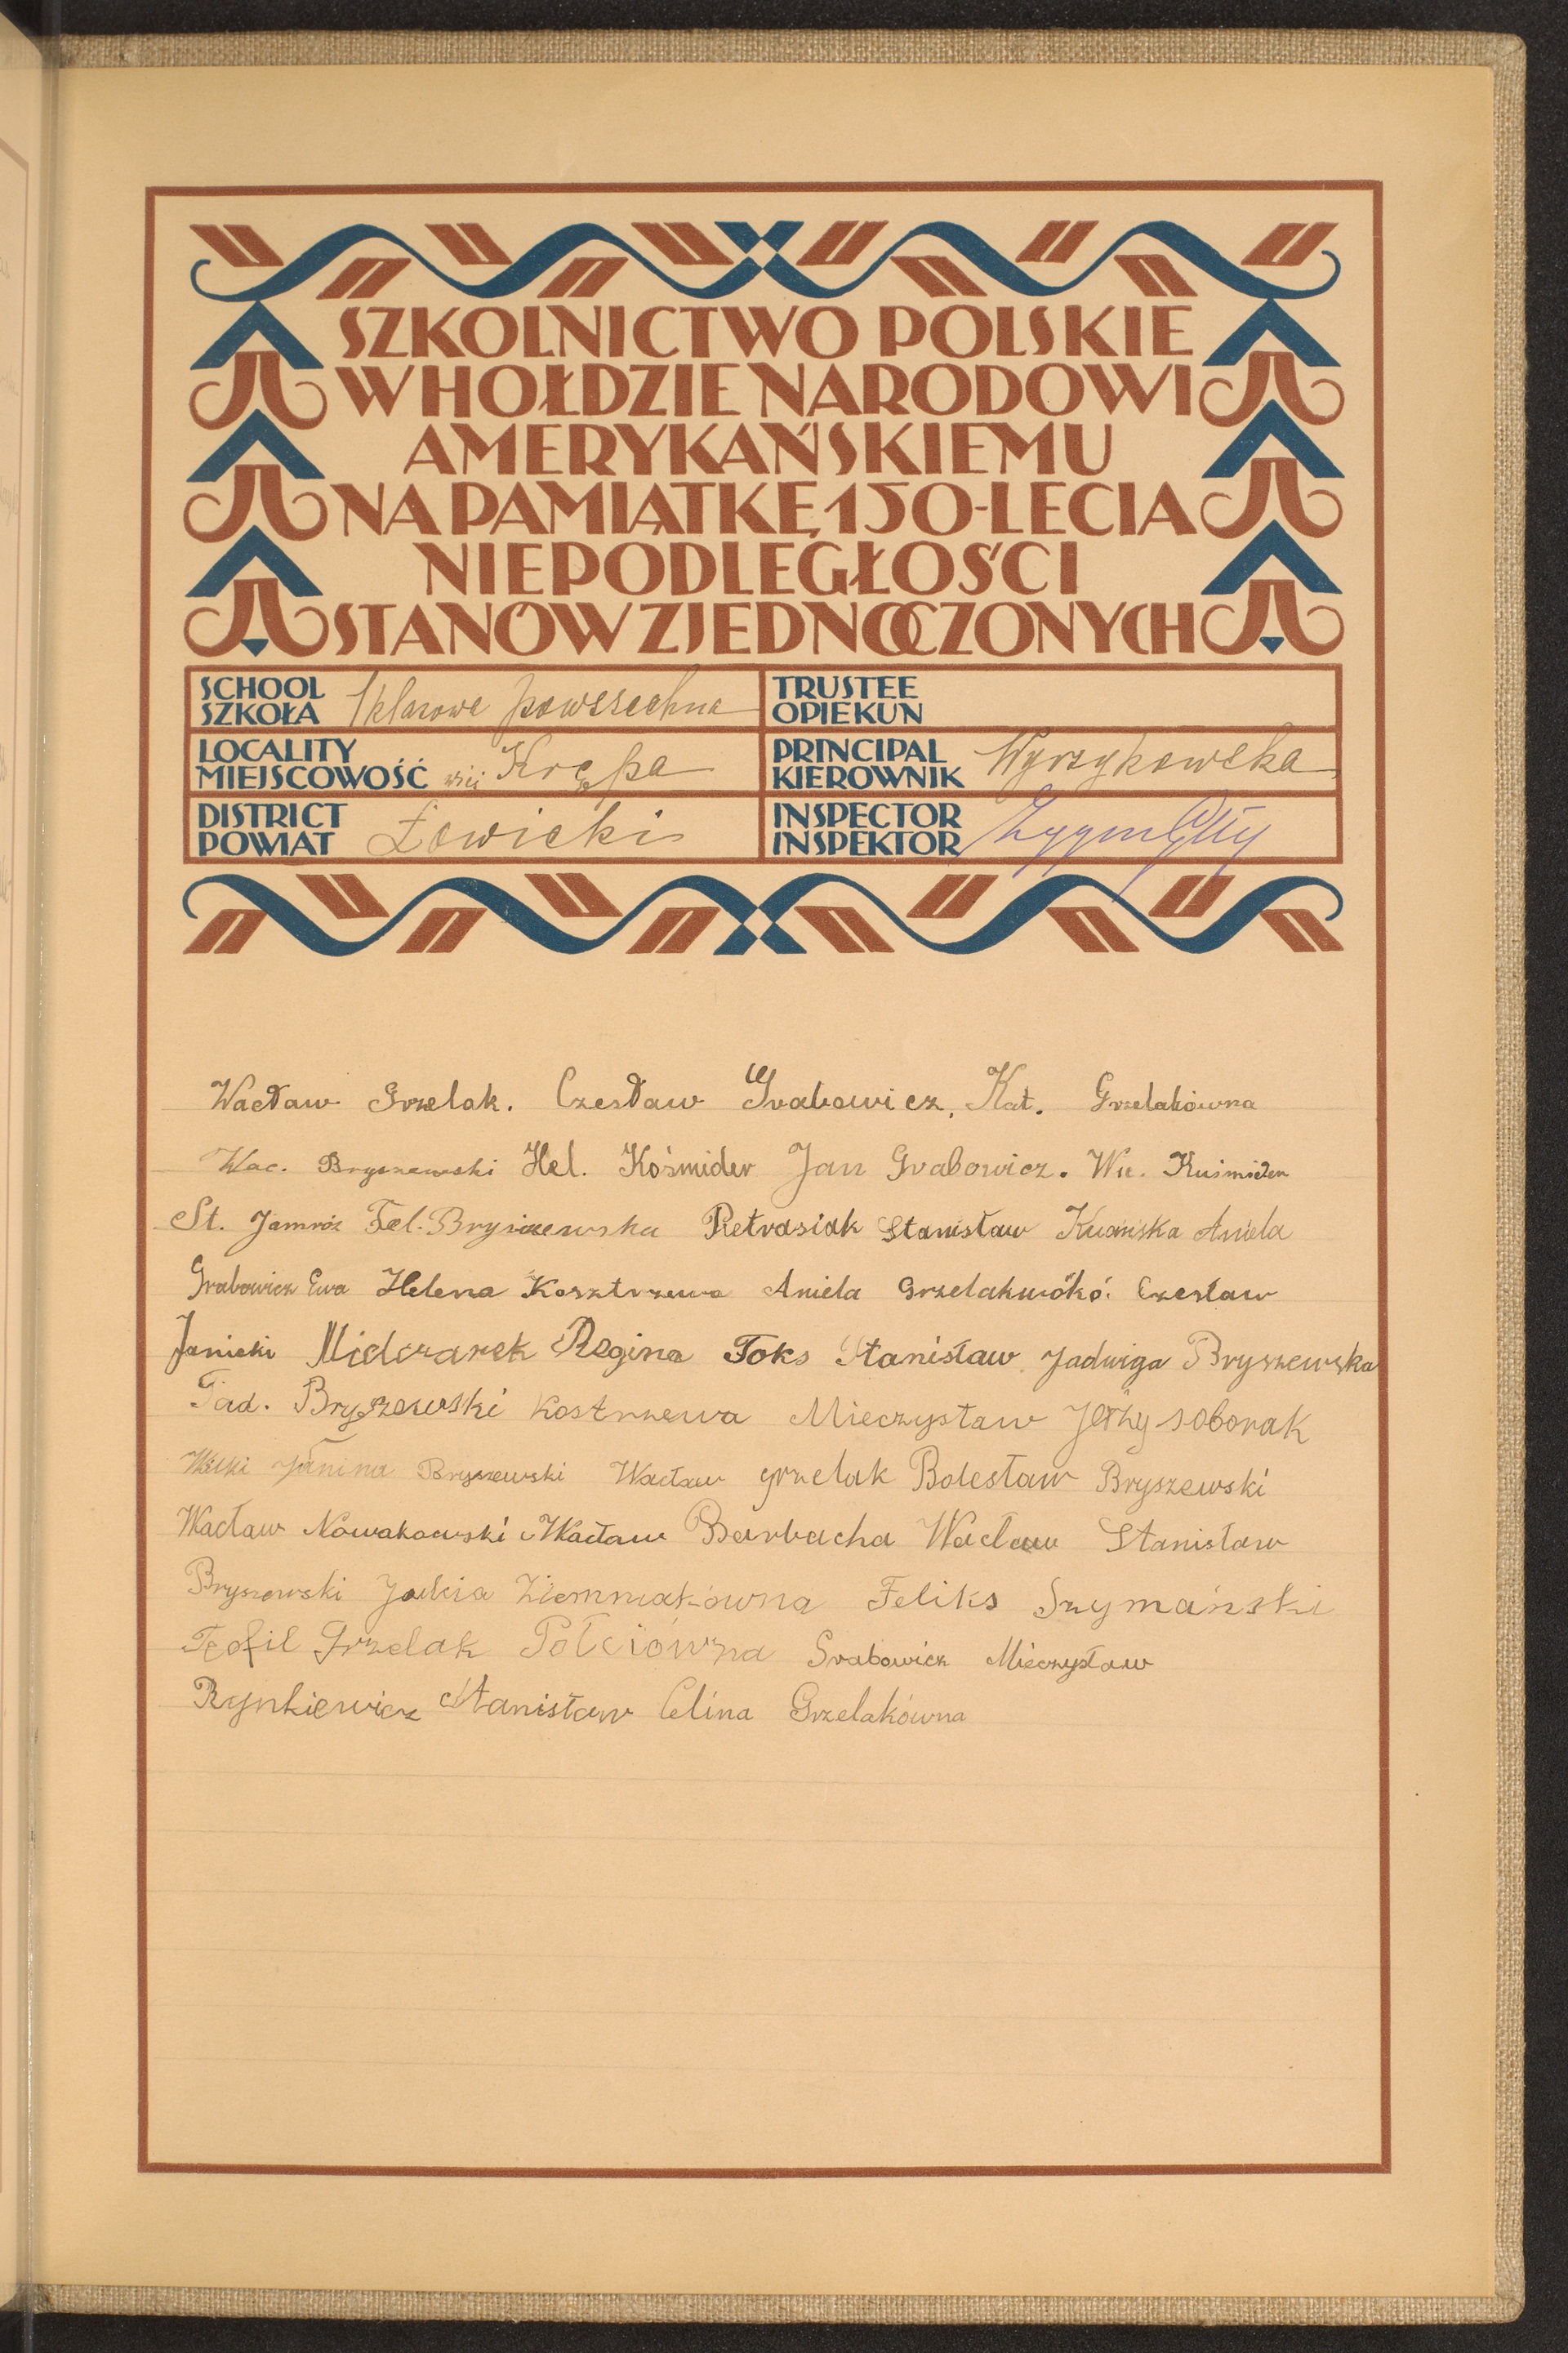 SZKOLNICTWO POLSKIE
W HOŁDZIE NARODOWI
AMERYKAŃSKIEMU
NA PAMIĄTKĘ 150-LECIA
NIEPODLEGŁOŚCI
STANÓW ZJEDNOCZONYCH
SCHOOL
SZKOŁA 1 klasowa powszechna
TRUSTEE
OPIEKUN
LOCALITY
MIEJSCOWOŚĆ wsi Krępa
PRINCIPAL
KIEROWNIK Wyrzykowska
DISTRICT
POWIAT Łowicki
INSPECTOR
INSPEKTOR
Wacław Grzelak. Czesław Grabowicz, Kat. Grzelakówna
Wac. Bryszewski Hel. Kośmider Jan Grabowicz. Wł. Kuśmider
St. Jamróz Fel. Bryszewska Pietrasiak Stanisław Aniela
Grabowicz Ewa Helena Kosztrzewa Aniela Czesław
Janicki Mielczarek Regina Foks Stanisław Jadwiga Bryszewska
Tad. Bryszewski Kostrzewa Mieczysław Jerzy soborak
Janina Bryszewski Wacław grzelak Bolesław Bryszewski
Wacław Nowakowski Wacław Berbacha Wacław Stanisław
Bryszewski Ziemniakówna Feliks Szymański
Teofil Grzelak Połciówna Grabowicz Mieczysław
Rynkiewicz Stanisław Celina Grzelakówna